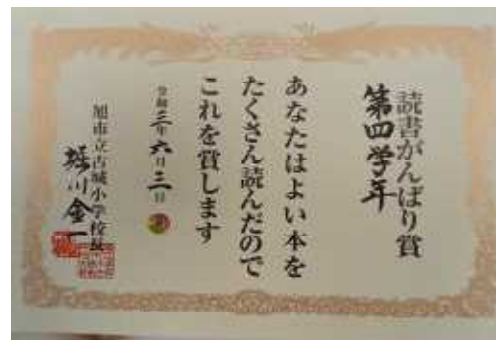 読書がんばり賞
第四学年
あなたはよい本を
たくさん読んだので
これを賞します
令和三年六月三日
旭市立古城小学校長
堀川金一